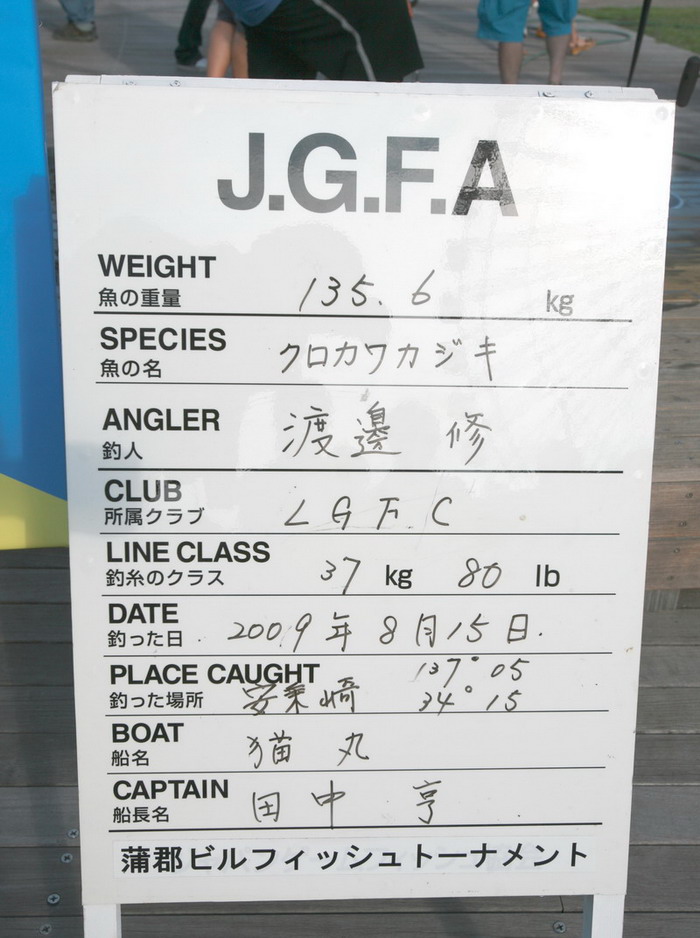 J.G.F.A
WEIGHT
魚の重量 135.6 kg
SPECIES
魚の名 クロカワカジキ
ANGLER
釣人 渡邊 修
CLUB
所属クラブ LGFC
LINE CLASS
釣糸のクラス 37 kg 80 lb
DATE
釣った日 2009年8月15日.
PLACE CAUGHT 137° 05
釣った場所 安乗崎 34° 15
BOAT
船名 猫丸
CAPTAIN
船長名 田中 亨
蒲郡ビルフィッシュトーナメント